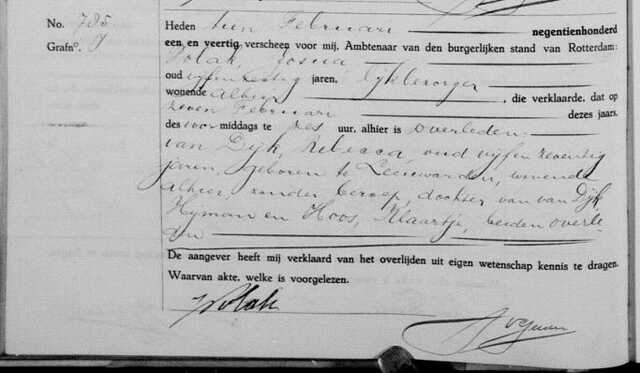 No. 785
Grafno. 9
Heden tien Februari negentienhonderd
een en veertig verscheen voor mij, Ambtenaar van den burgerlijken stand van Rotterdam:
Polak, Josua
oud vijfenzestig jaren, lijkbezorger
wonende alhier, die verklaarde, dat op
zeven Februari dezes jaars,
des voor middags te zes uur, alhier is overleden
van Dijk, Rebecca, oud vijf en zeventig
jaren, geboren te Leeuwarden, wonende
alhier, zonder beroep, dochter van van Dijk,
Hyman en Hoos, Klaartje, beiden overle-
den
De aangever heeft mij verklaard van het overlijden uit eigen wetenschap kennis te dragen.
Waarvan akte, welke is voorgelezen.
JPolak